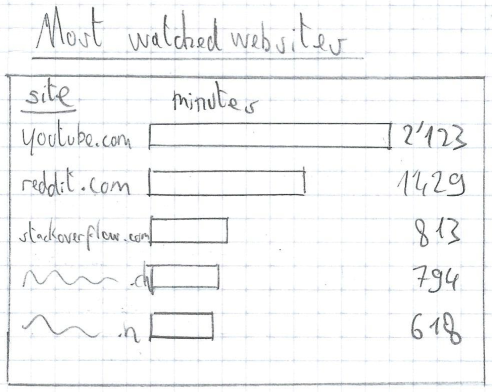 Most watched websites
site minutes
youtube.com 2'123
reddit.com 1429
stackoverflow.com 813
.ch 794
618